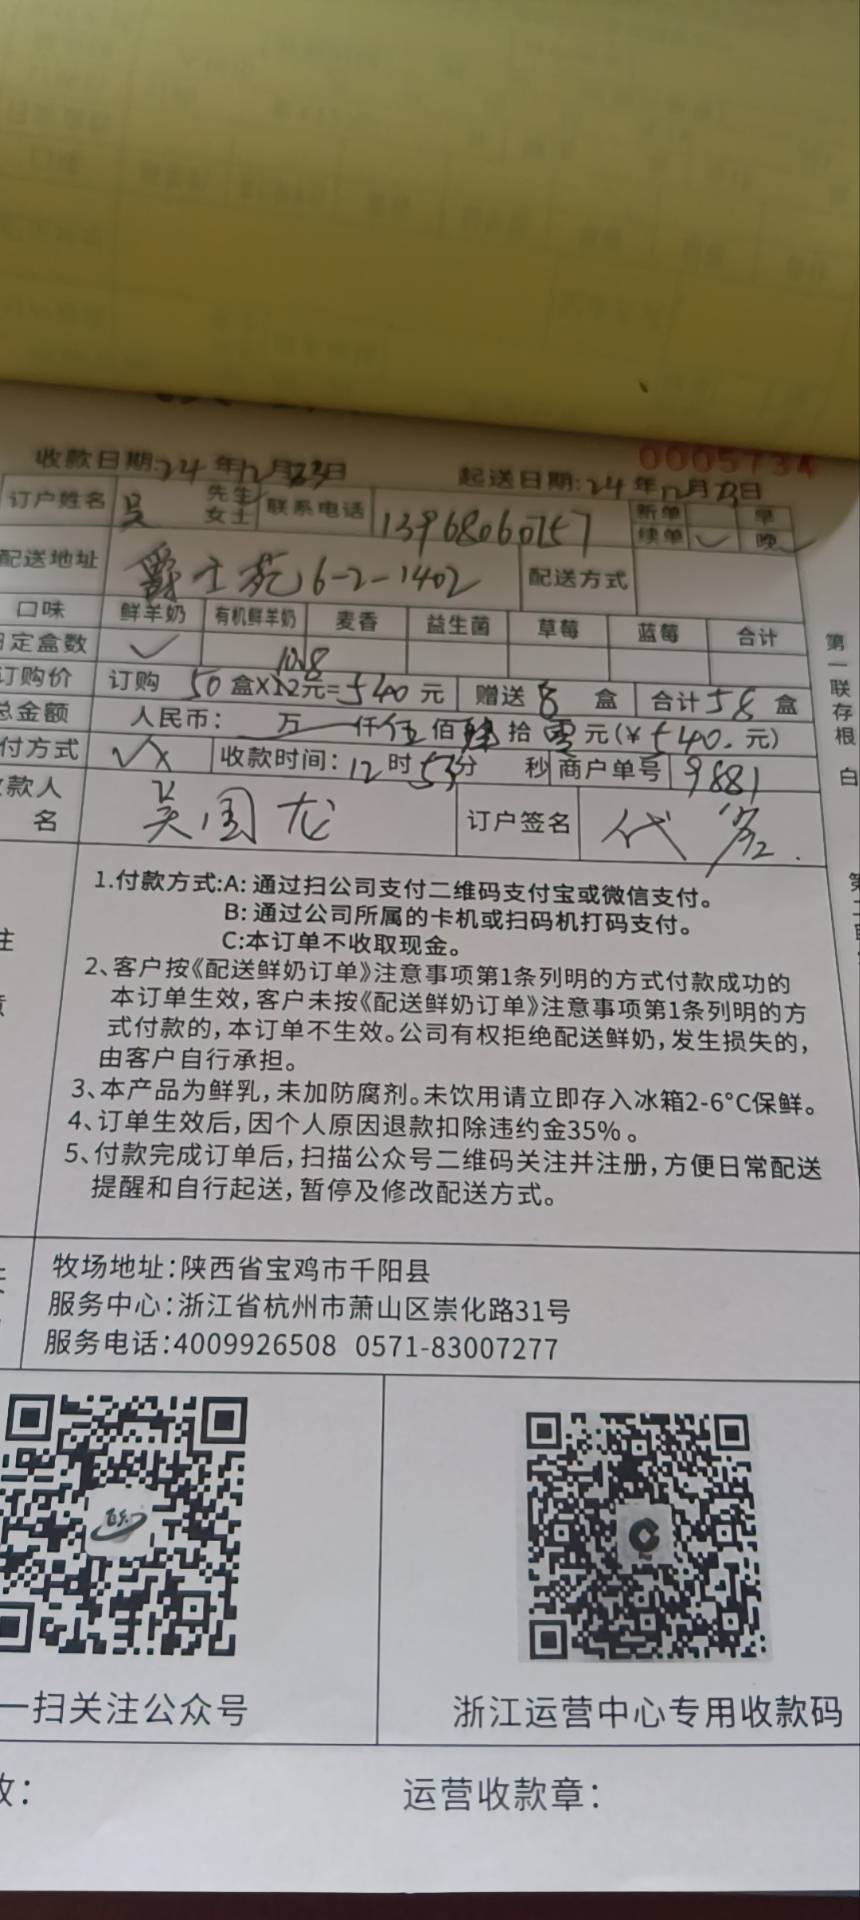 0005734
收款日期:24年12月23日 起送日期:24年12月23日
订户姓名 吴 先生 女士 联系电话 13968060757 新单 早
续单 ✓ 晚 ✓
配送地址 爵士苑6-2-1402 配送方式
口味 鲜羊奶 有机鲜羊奶 麦香 益生菌 草莓 蓝莓 合计
定盒数 ✓
10.8
订购价 订购 50 盒X12元=540元 赠送 8 盒 合计 58 盒
总金额 人民币: 万 仟伍佰肆拾零元(¥540.元)
付方式 ✓X 收款时间:12时53分 秒 商户单号 9881
款人
名 吴国龙 订户签名 代签.
第一联存根 白
注
1.付款方式:A:通过扫公司支付二维码支付宝或微信支付。
B:通过公司所属的卡机或扫码机打码支付。
C:本订单不收取现金。
2、客户按《配送鲜奶订单》注意事项第1条列明的方式付款成功的
本订单生效,客户未按《配送鲜奶订单》注意事项第1条列明的方
式付款的,本订单不生效。公司有权拒绝配送鲜奶,发生损失的,
由客户自行承担。
3、本产品为鲜乳,未加防腐剂。未饮用请立即存入冰箱2-6°C保鲜。
4、订单生效后,因个人原因退款扣除违约金35%。
5、付款完成订单后,扫描公众号二维码关注并注册,方便日常配送
提醒和自行起送,暂停及修改配送方式。
牧场地址:陕西省宝鸡市千阳县
服务中心:浙江省杭州市萧山区崇化路31号
服务电话:4009926508 0571-83007277
一扫关注公众号 浙江运营中心专用收款码
运营收款章: